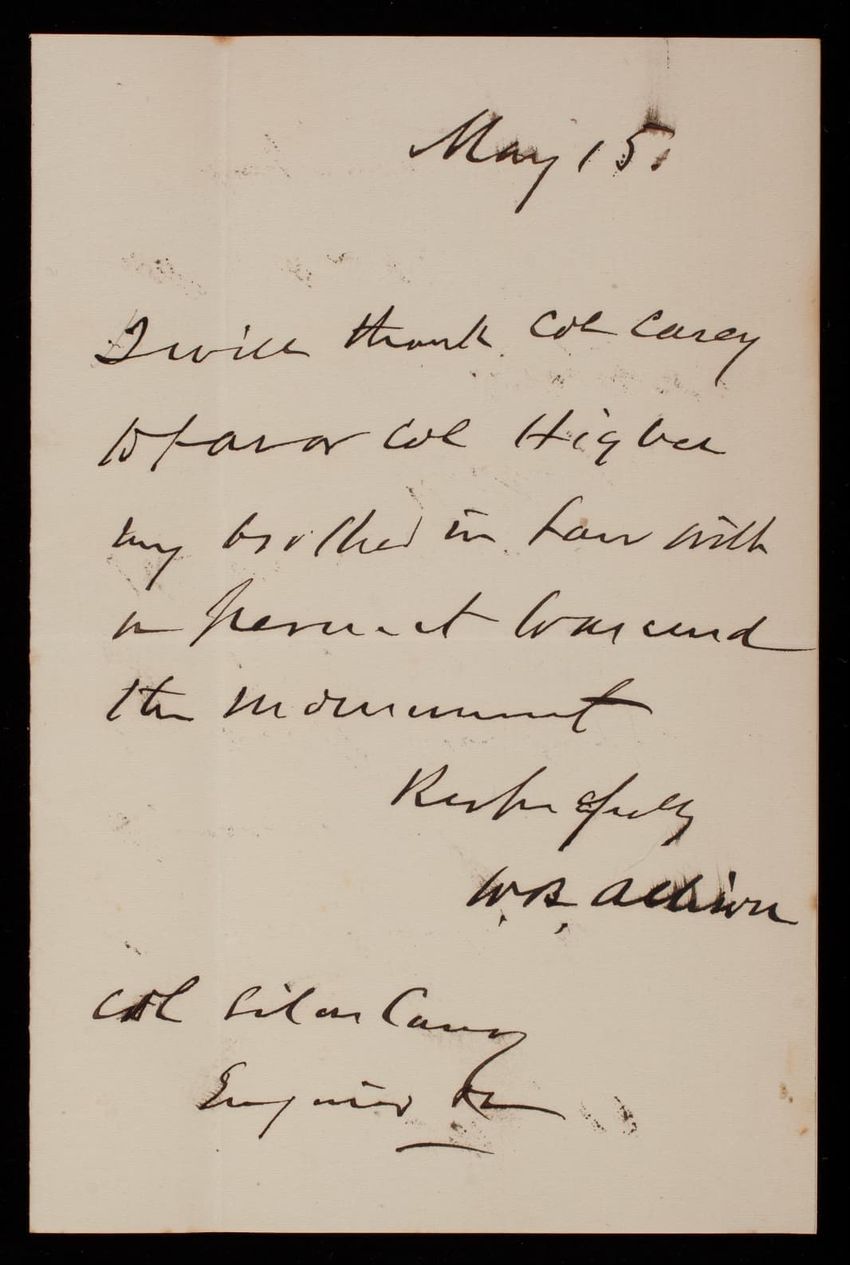 May 15.
I will thank Col Casey
to favor Col Higbee
my brother in law with
a permit to ascend
the monument
Respectfully
W.B. Allison
Col Silas Casey
Engineer